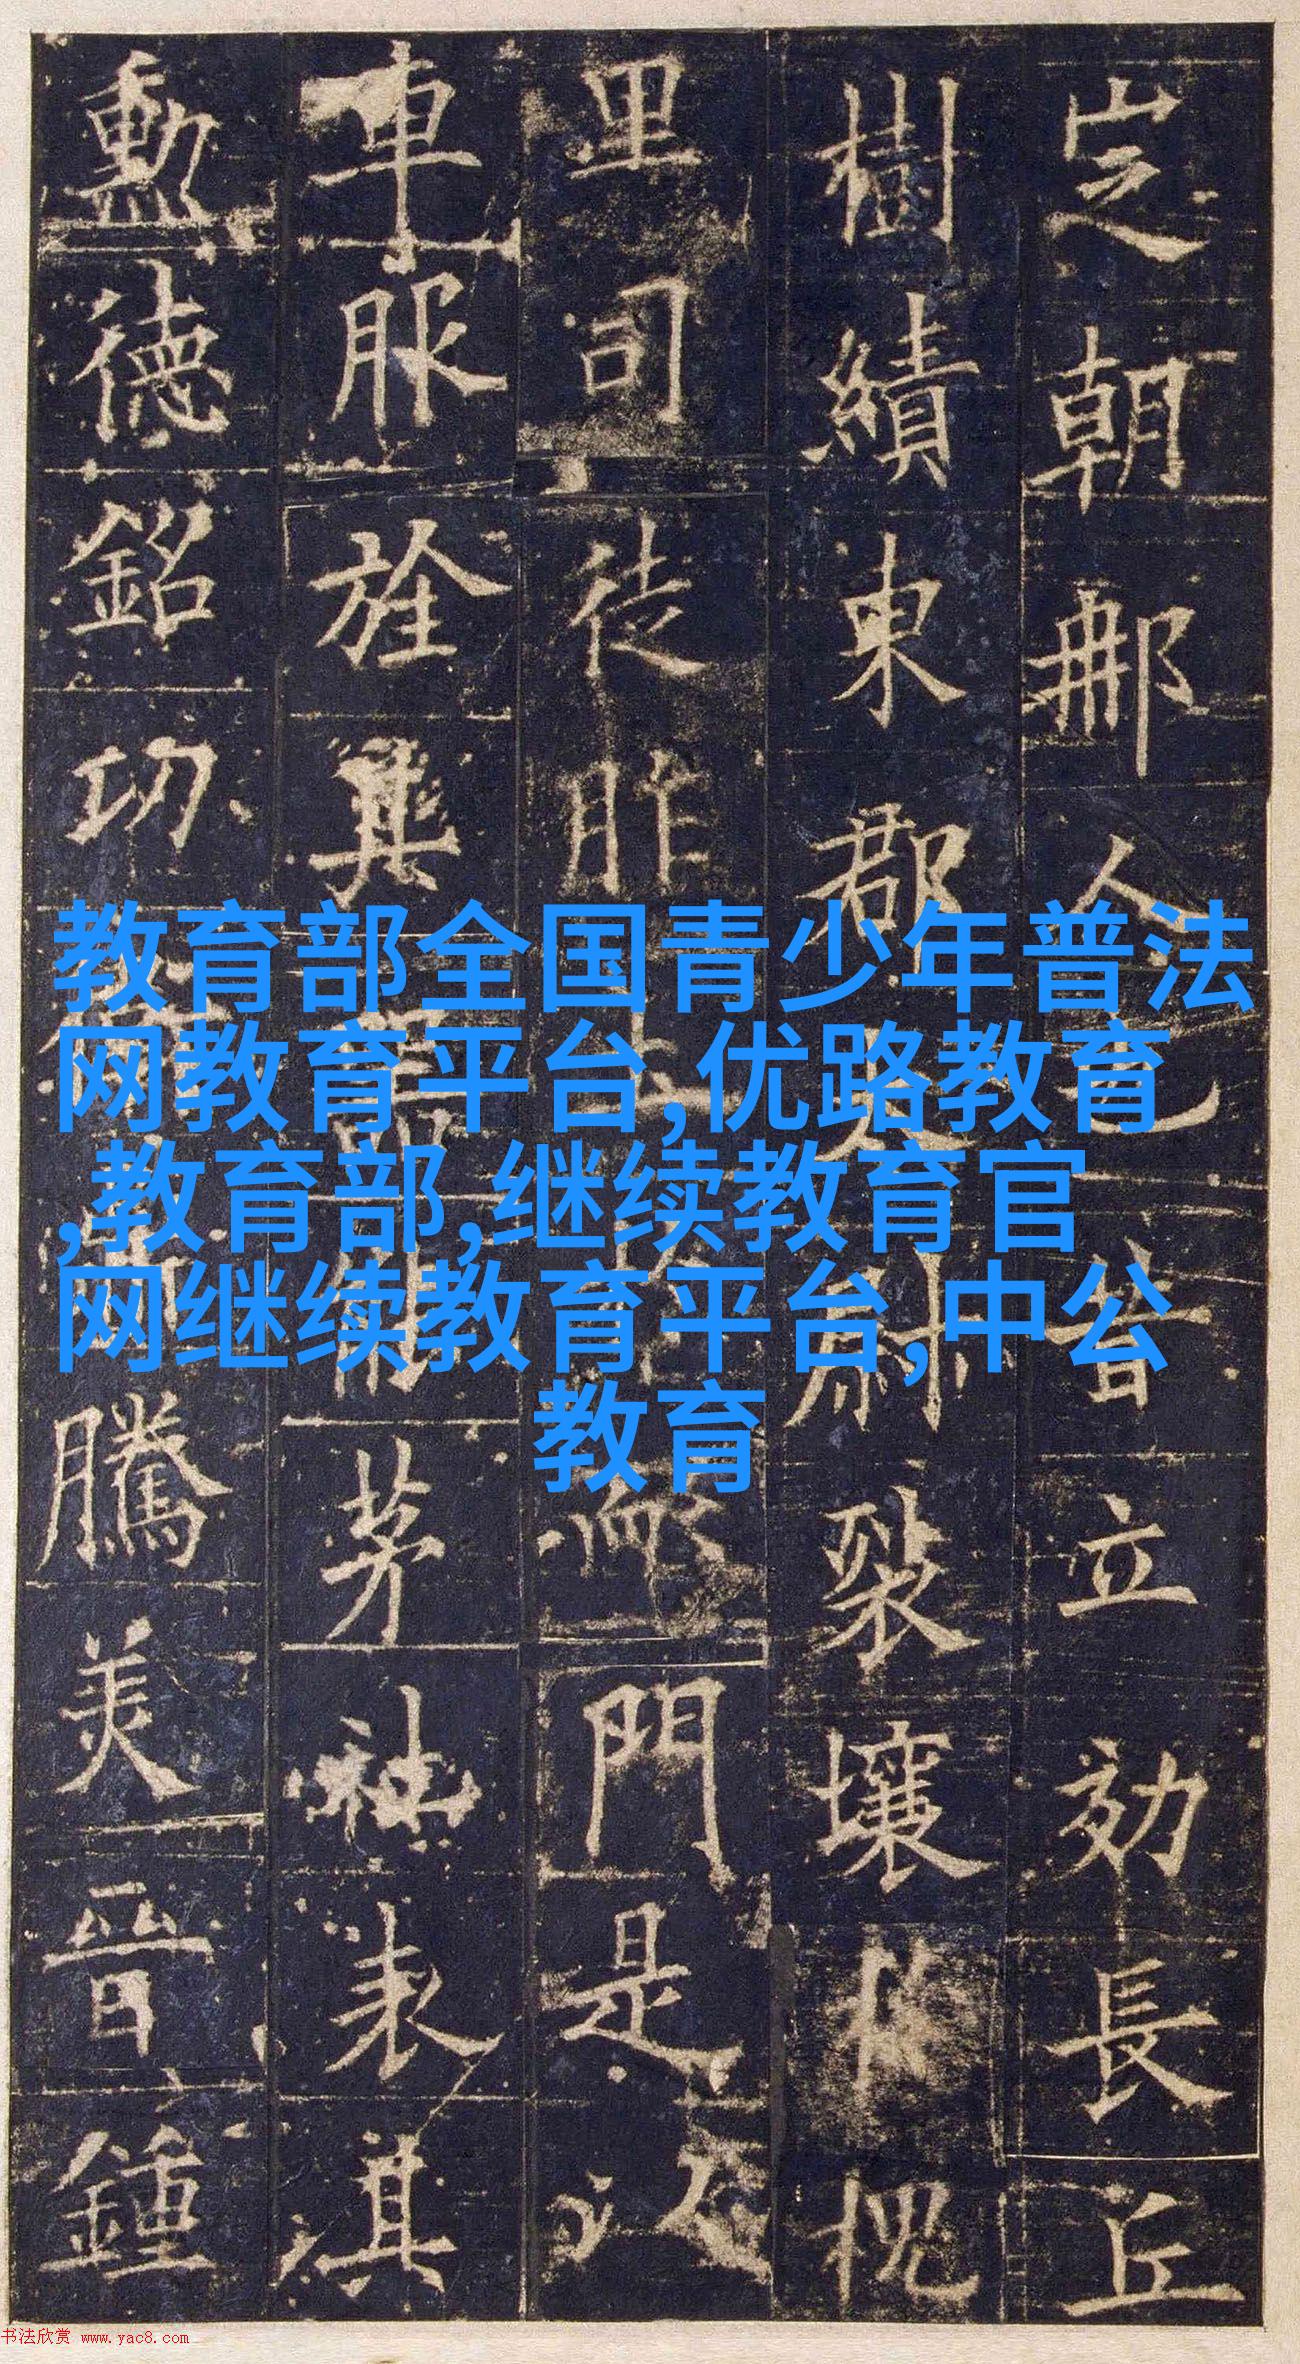 芝朝那人也昔立効長丘
樹績東郡太尉裴壞 槐
里司徒胙 門是
車服旌其器 茅社表其
勳德銘功 騰美晉鍾
教育部全国青少年普法
网教育平台,优路教育
,教育部,继续教育官
网继续教育平台,中公
教育
书法欣赏 www.yac8.com